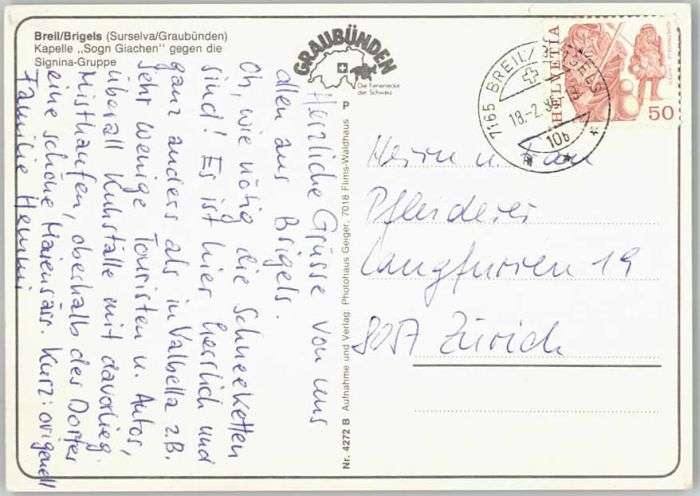 Breil/Brigels (Surselva/Graubünden)
Kapelle „Sogn Giachen" gegen die
Signina-Gruppe
GRAUBÜNDEN
Die Ferienecke
der Schweiz
HELVETIA
50
7165 BREIL/BRIGELS
18.-2.
10b
Herzliche Grüsse von uns
allen aus Brigels.
Oh, wie nötig die Schneeketten
sind! Es ist hier herrlich und
ganz anders als in Valbella z.B.
sehr wenige Touristen u. Autos,
überall Kuhställe mit davorlieg.
Misthaufen, oberhalb des Dorfes
eine schöne Maiensäss. Kurz: originell
Familie Hemmi
P
Nr. 4272 B Aufnahme und Verlag: Photohaus Geiger, 7018 Flims-Waldhaus
Herrn u. Frau
Pfleiderer
Langfurren 19
8057 Zürich